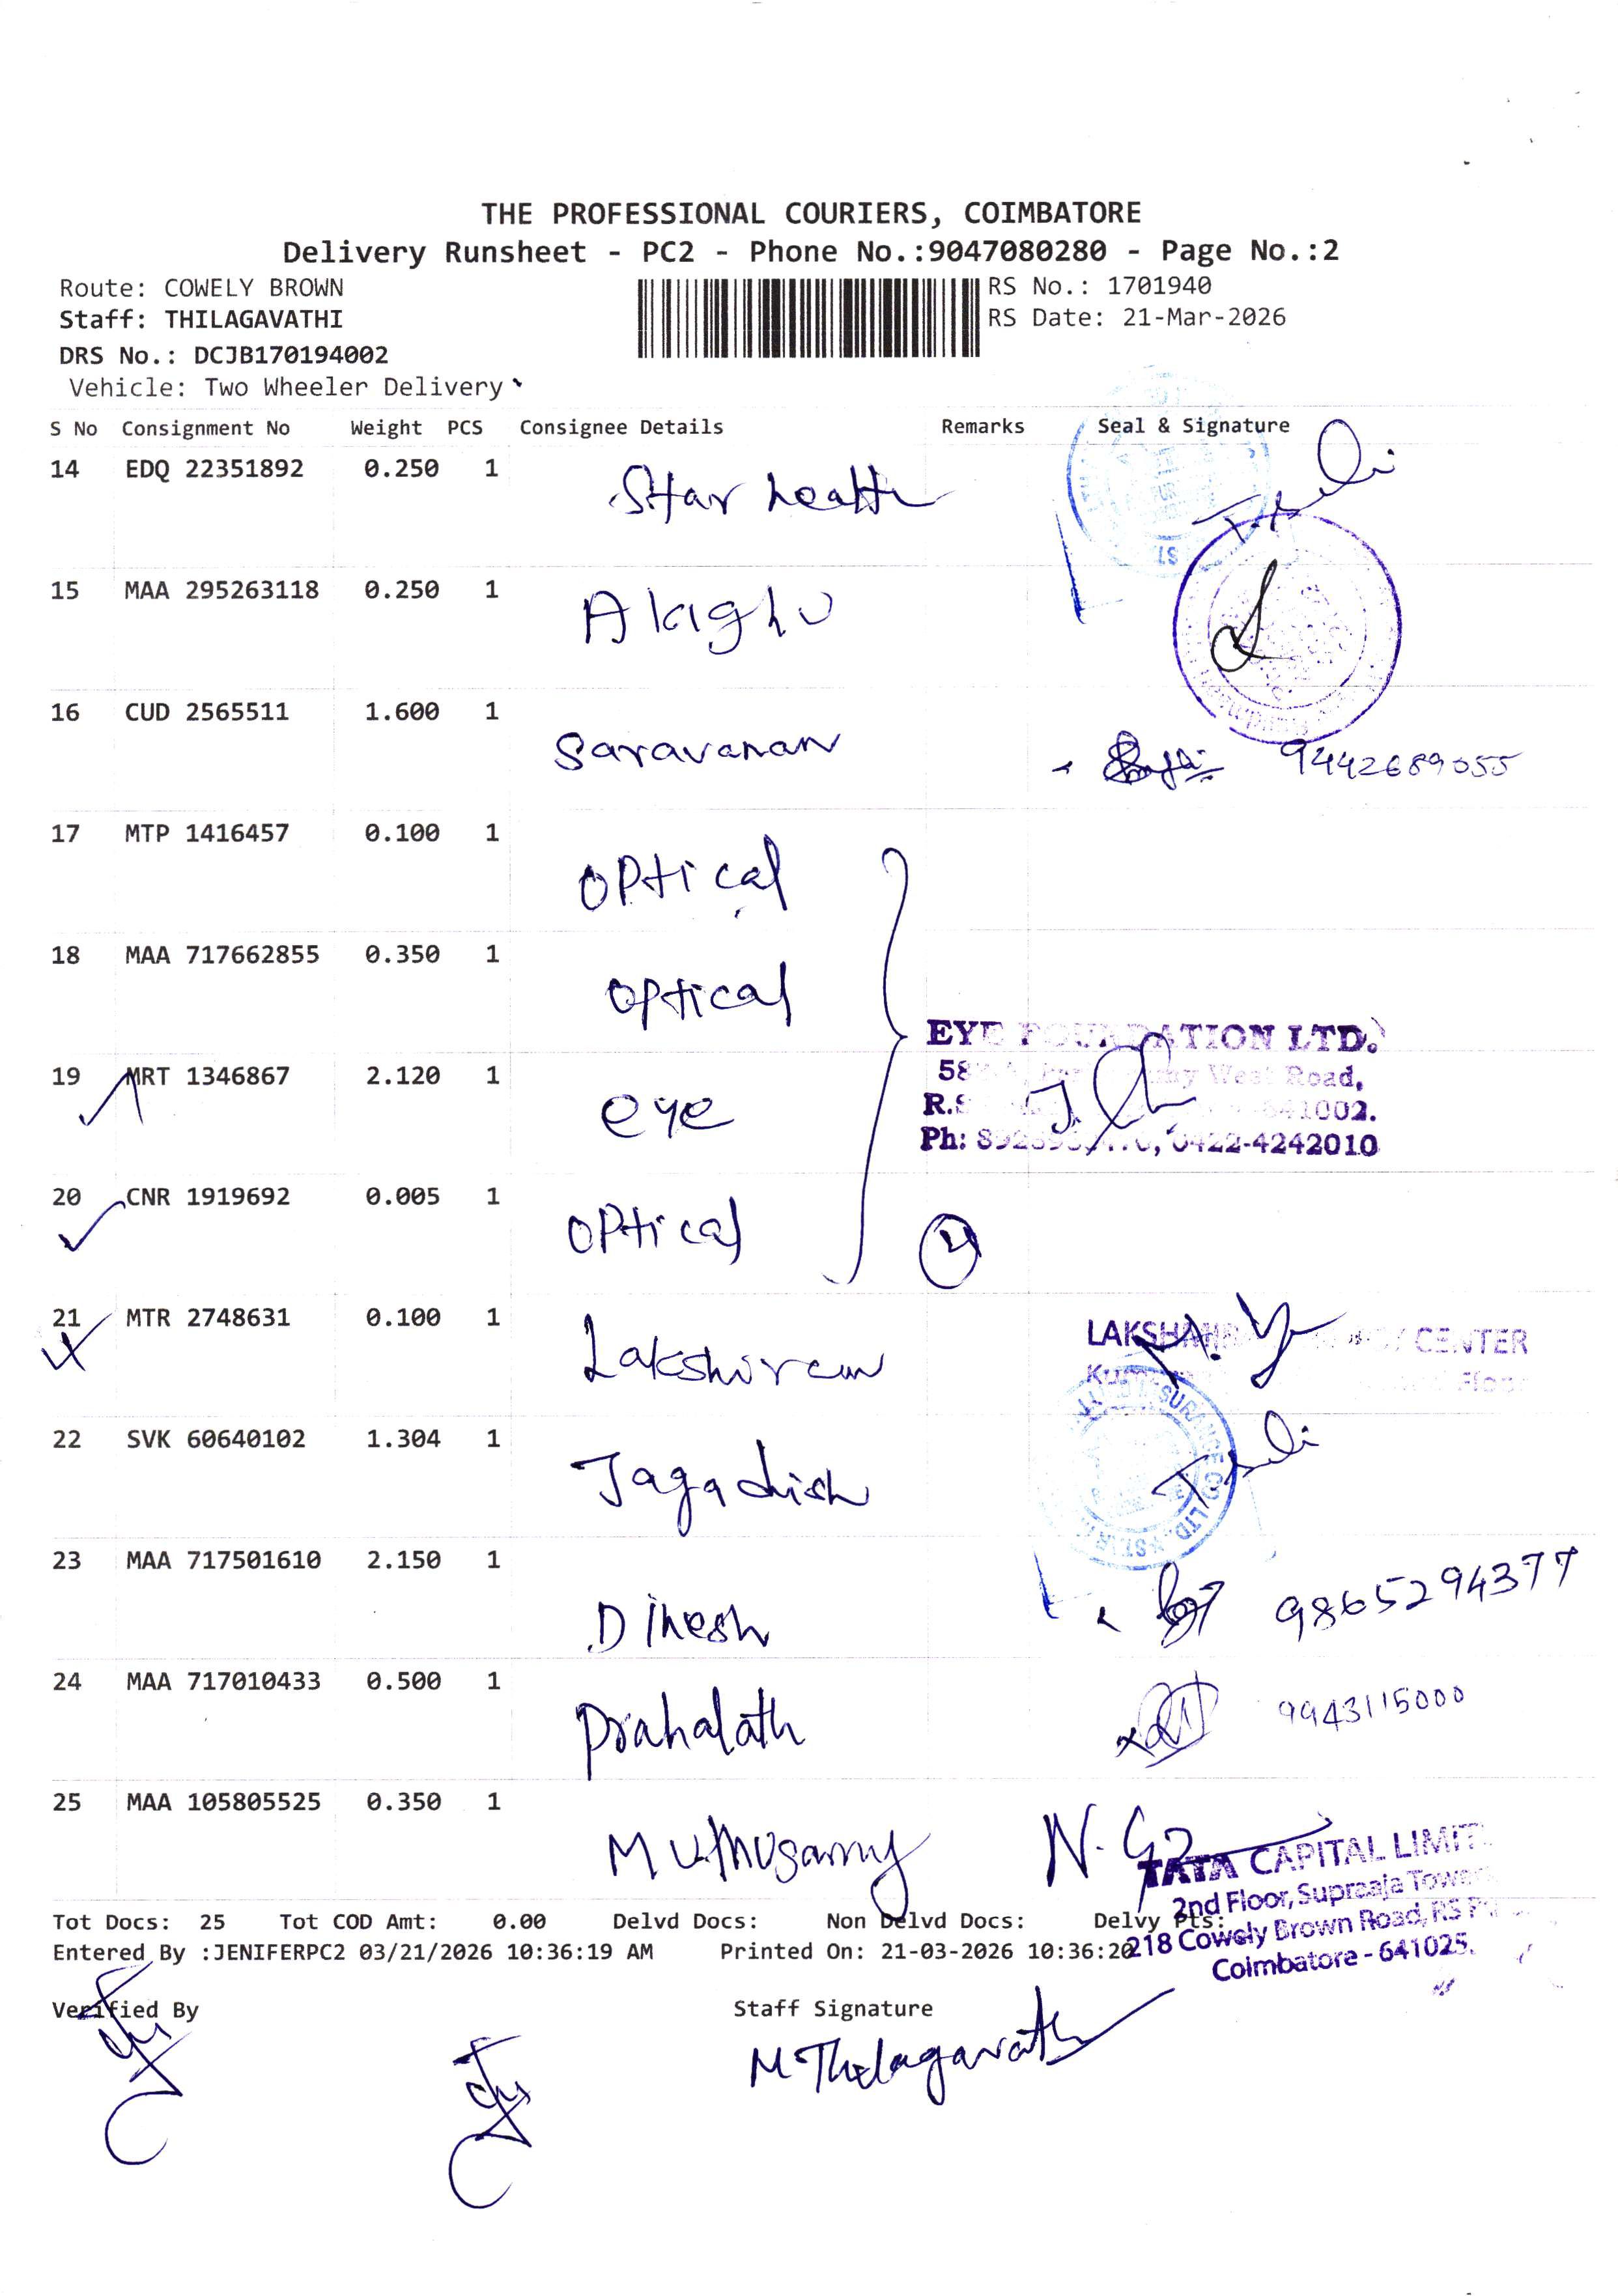 THE PROFESSIONAL COURIERS, COIMBATORE
Delivery Runsheet - PC2 - Phone No.:9047080280 - Page No.:2
Route: COWELY BROWN
Staff: THILAGAVATHI
DRS No.: DCJB170194002
Vehicle: Two Wheeler Delivery
RS No.: 1701940
RS Date: 21-Mar-2026
S No Consignment No Weight PCS Consignee Details Remarks Seal & Signature
14 EDQ 22351892 0.250 1 Star health
15 MAA 295263118 0.250 1
16 CUD 2565511 1.600 1 Saravanan 9442689055
17 MTP 1416457 0.100 1 Optical
18 MAA 717662855 0.350 1 Optical
EYE FOUNDATION LTD.
West Road,
641002.
Ph: 0422-4242010
19 MRT 1346867 2.120 1 eye
20 CNR 1919692 0.005 1 Optical 4
21 MTR 2748631 0.100 1
CENTER
Floor
22 SVK 60640102 1.304 1 Jagadish
SURANCE CO LTD
23 MAA 717501610 2.150 1 Dinesh 9865294377
24 MAA 717010433 0.500 1 Prahalath 9943115000
25 MAA 105805525 0.350 1 Muthusamy
TATA CAPITAL LIMIT
2nd Floor, Supraaja Tower
218 Cowely Brown Road, RS
Coimbatore - 641025.
Tot Docs: 25 Tot COD Amt: 0.00 Delvd Docs: Non Delvd Docs: Delvy Pts:
Entered By :JENIFERPC2 03/21/2026 10:36:19 AM Printed On: 21-03-2026 10:36:20
Verified By Staff Signature
M Thilagavathi